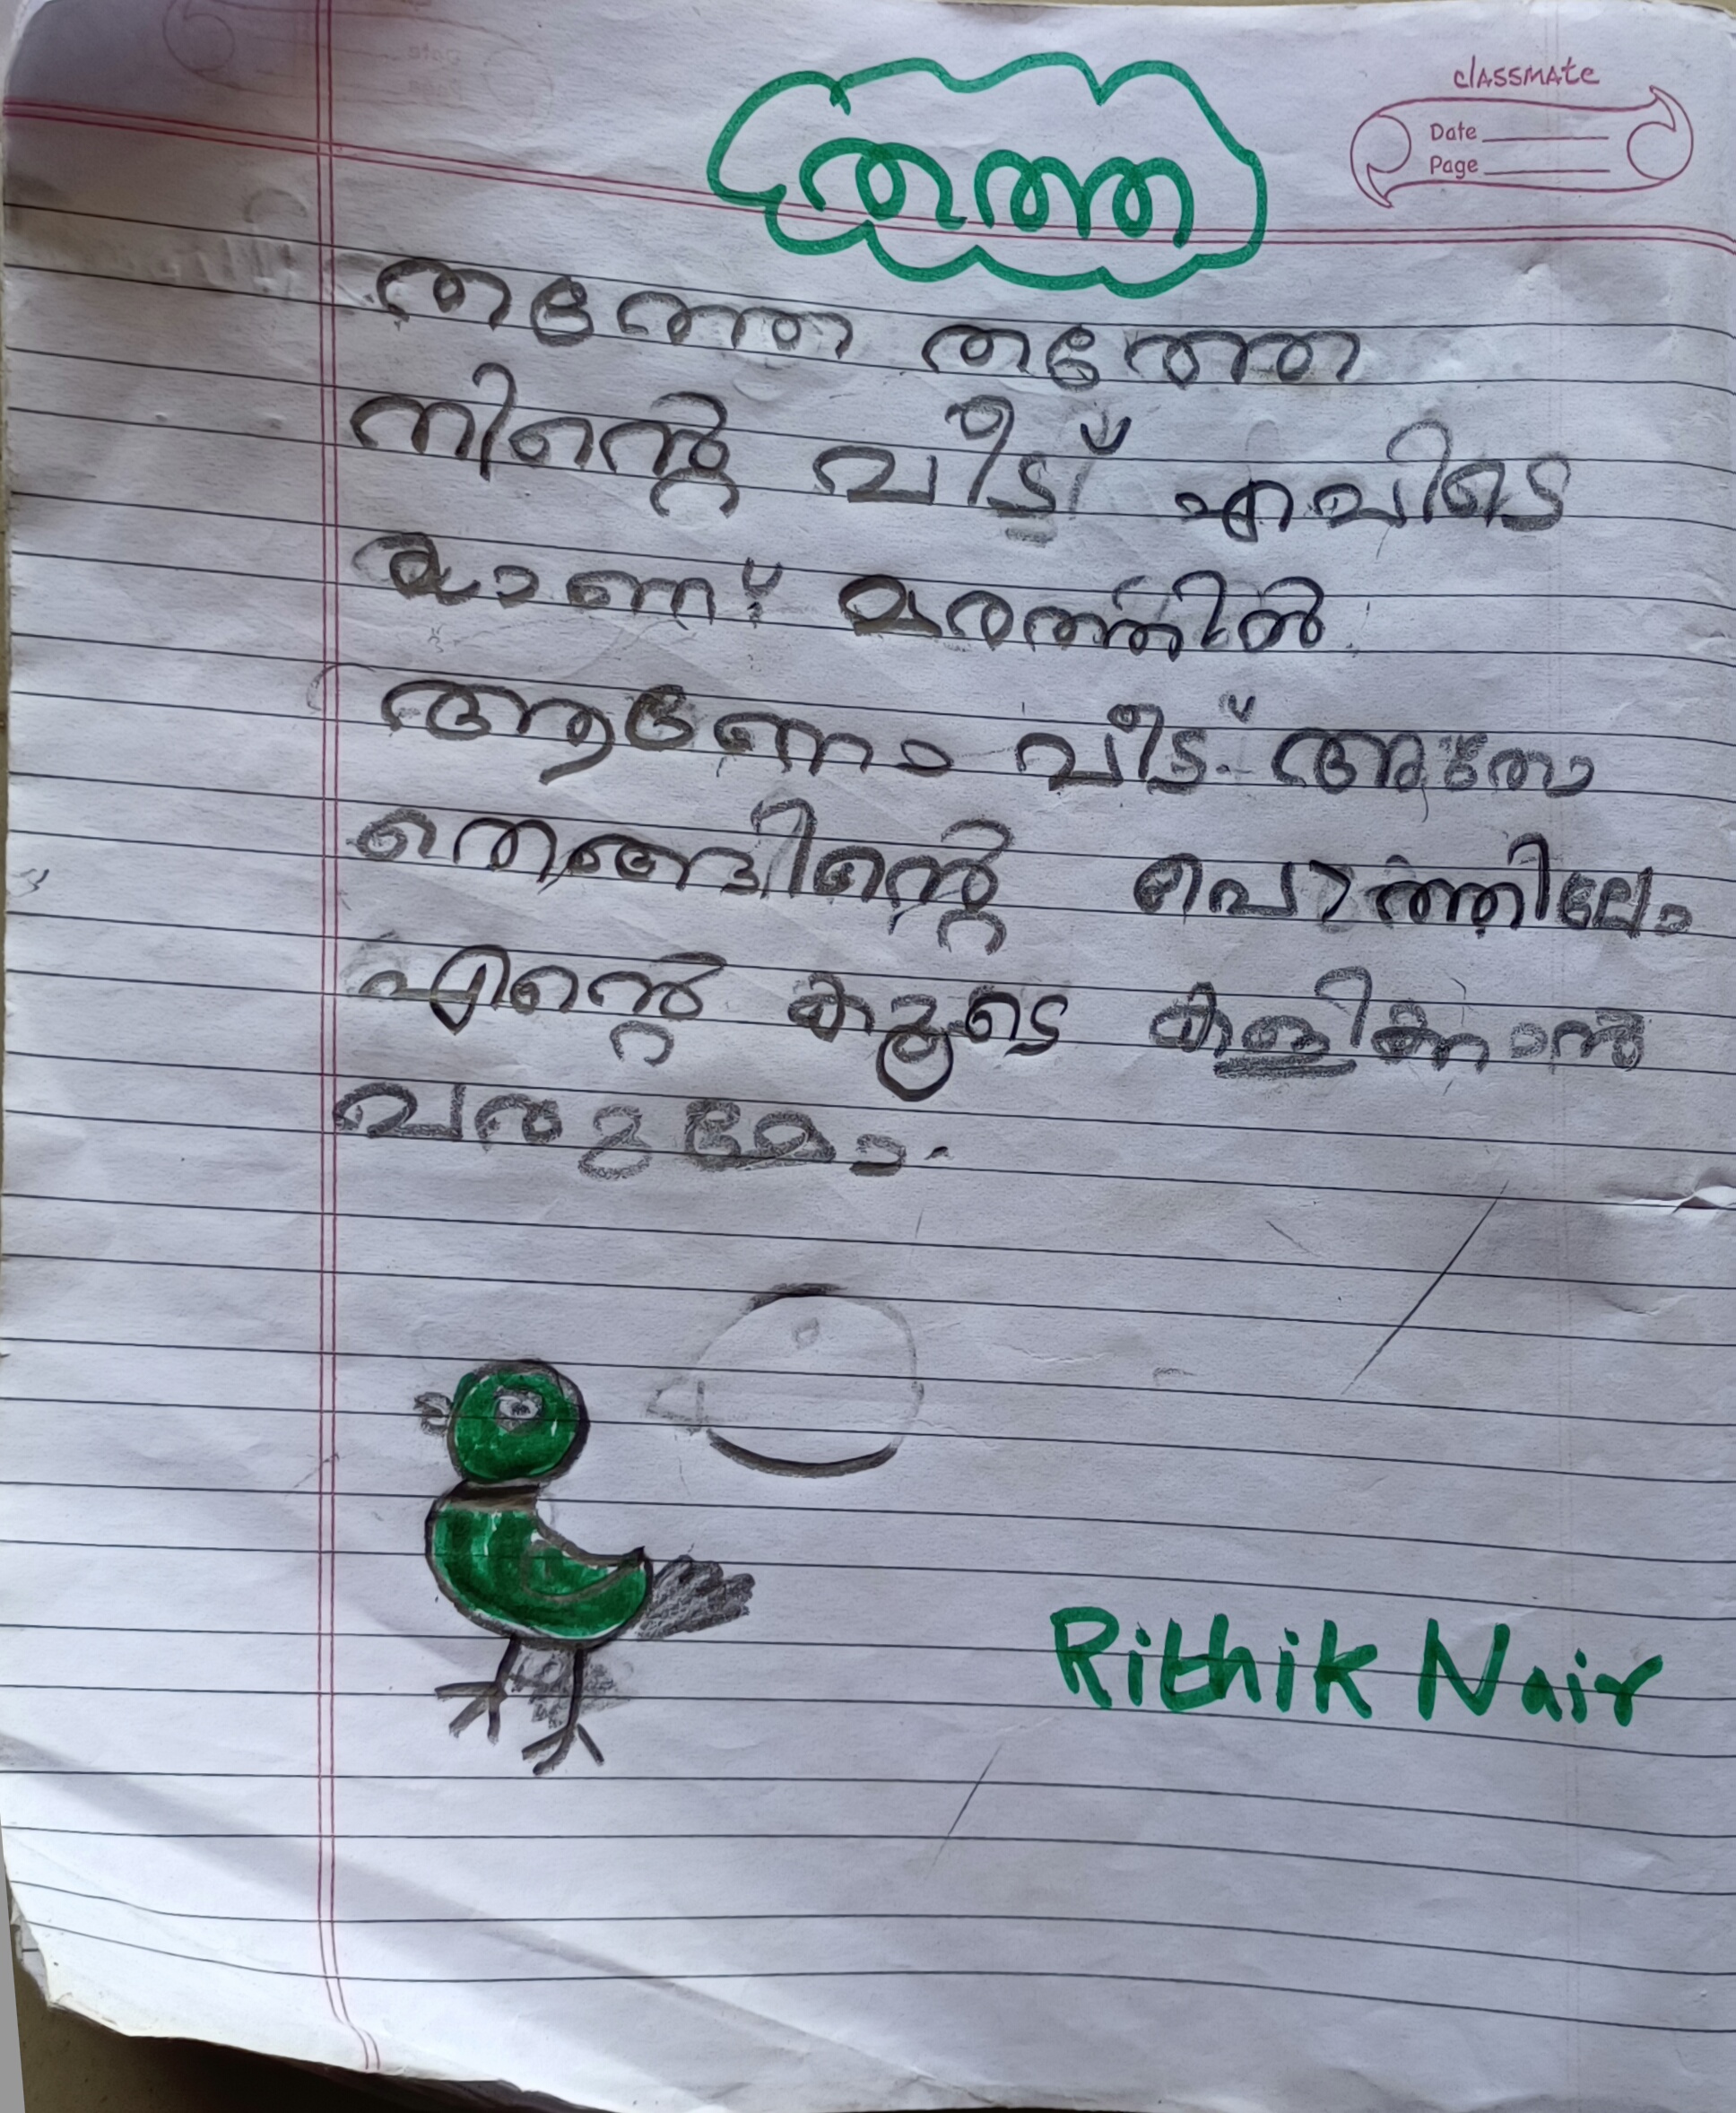 classmate
Date
Page
തത്ത
തത്തേ തത്തേ
നിന്റെ വീട് എവിടെ
യാണ് മരത്തിൽ
ആണോ വീട് അതോ
തെങ്ങിന്റെ പൊത്തിലോ
എന്റെ കൂടെ കളിക്കാൻ
വരുമോ.
Rithik Nair